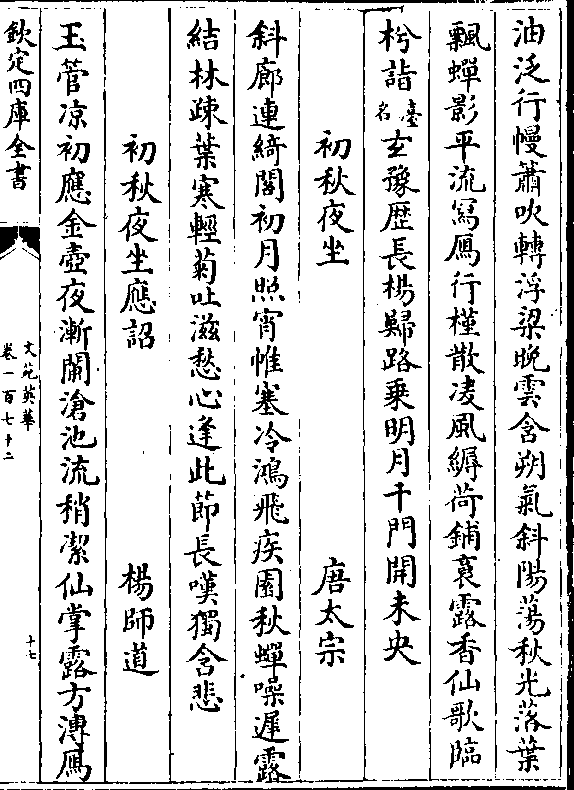 油泛行幔簫吹轉浮梁晚雲含朔氣斜陽蕩秋光落葉
飄蟬影平流寫鴈行槿散凌風縟荷鋪裛露香仙歌臨
枍詣臺名玄豫歴長楊歸路乘明月千門開未央
初秋夜坐 唐太宗
斜廊連綺閣初月照宵帷塞冷鴻飛疾園秋蟬噪遲露
結林疎葉寒輕菊吐滋愁心逢此節長嘆獨含悲
初秋夜坐應詔 楊師道
玉管凉初應金壺夜漸闌滄池流稍潔仙掌露方漙鴈
欽定四庫全書
文苑英華
卷一百七十二
十七